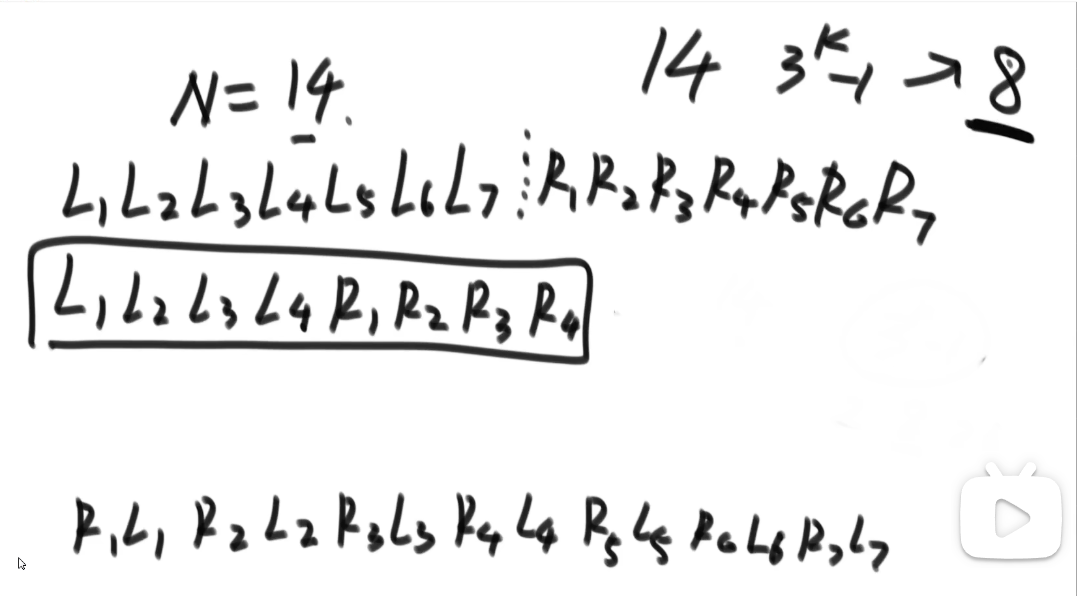 N = 14. 14 3^K-1 → 8
L₁L₂L₃L₄L₅L₆L₇ ⋮ R₁R₂R₃R₄R₅R₆R₇
L₁L₂L₃L₄R₁R₂R₃R₄
R₁L₁R₂L₂R₃L₃R₄L₄R₅L₅R₆L₆R₇L₇